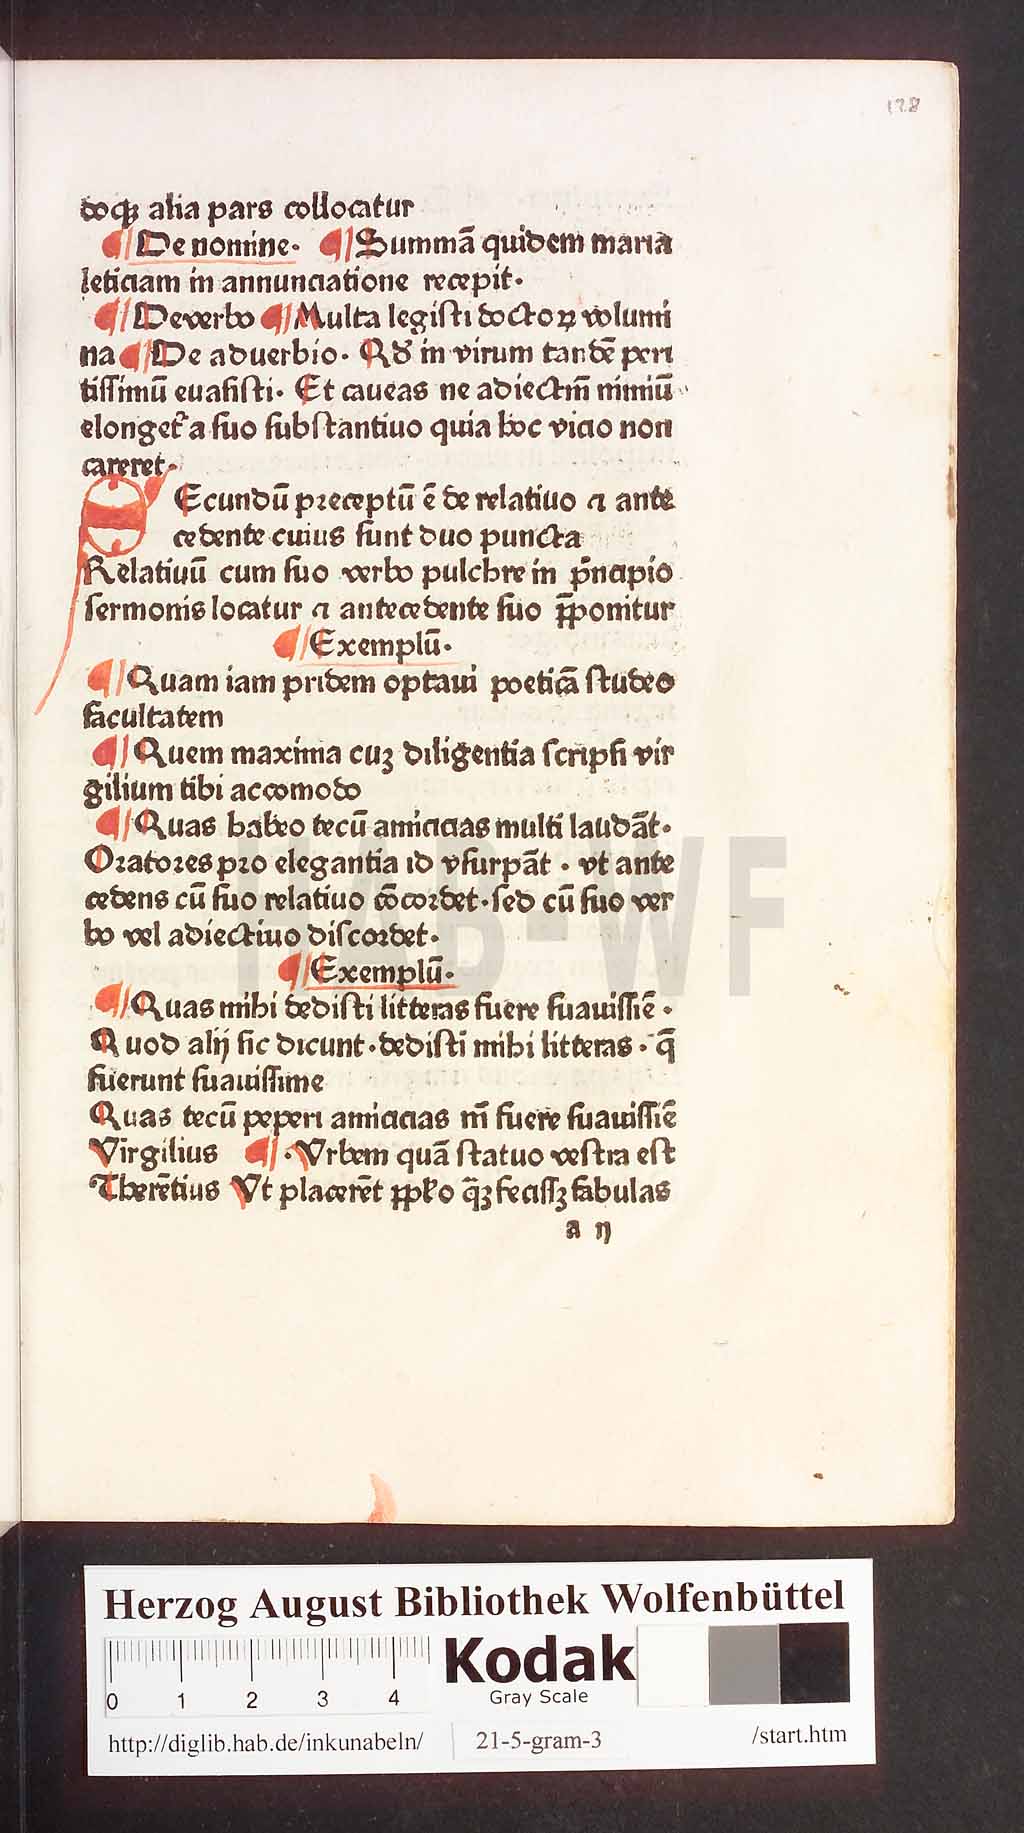 128
doq̃ꝫ alia pars collocatur
¶ De nomine. ¶ Summã quidem maria
leticiam in annunciatione recepit.
¶ De verbo ¶ Multa legisti doctoꝝ volumi
na ¶ De aduerbio. Qđ in virum tandẽ peri
tissimũ euasisti. Et caueas ne adiectm̃ nimiũ
elonget᷑ a suo substantiuo quia hoc vicio non
careret.
SEcundũ preceptũ ẽ de relatiuo ⁊ ante
cedente cuius sunt duo puncta
Relatiuũ cum suo verbo pulchre in pͥncipio
sermonis locatur ⁊ antecedente suo p̄ponitur
¶ Exemplũ.
¶ Quam iam pridem optaui poeticã studeo
facultatem
¶ Quem maxima cuꝫ diligentia scripsi vir
gilium tibi accomodo
¶ Quas habeo tecũ amicicias multi laudãt.
Oratores pro elegantia id vsurpãt . vt ante
cedens cũ suo relatiuo cõcordet. sed cũ suo ver
bo vel adiectiuo discordet.
¶ Exemplũ.
¶ Quas mihi dedisti litteras fuere suauissiẽ .
Quod alij sic dicunt. dedisti mihi litteras . q̃
fuerunt suauissime
Quas tecũ peperi amicicias m̃ fuere suauissiẽ
Virgilius ¶ . Vrbem quã statuo vestra est
Therẽtius Vt placerẽt ꝑpło q̃ꝫ fecissꝫ fabulas
a ij
HAB-WF
Herzog August Bibliothek Wolfenbüttel
0 1 2 3 4
Kodak
Gray Scale
http://diglib.hab.de/inkunabeln/ 21-5-gram-3 /start.htm